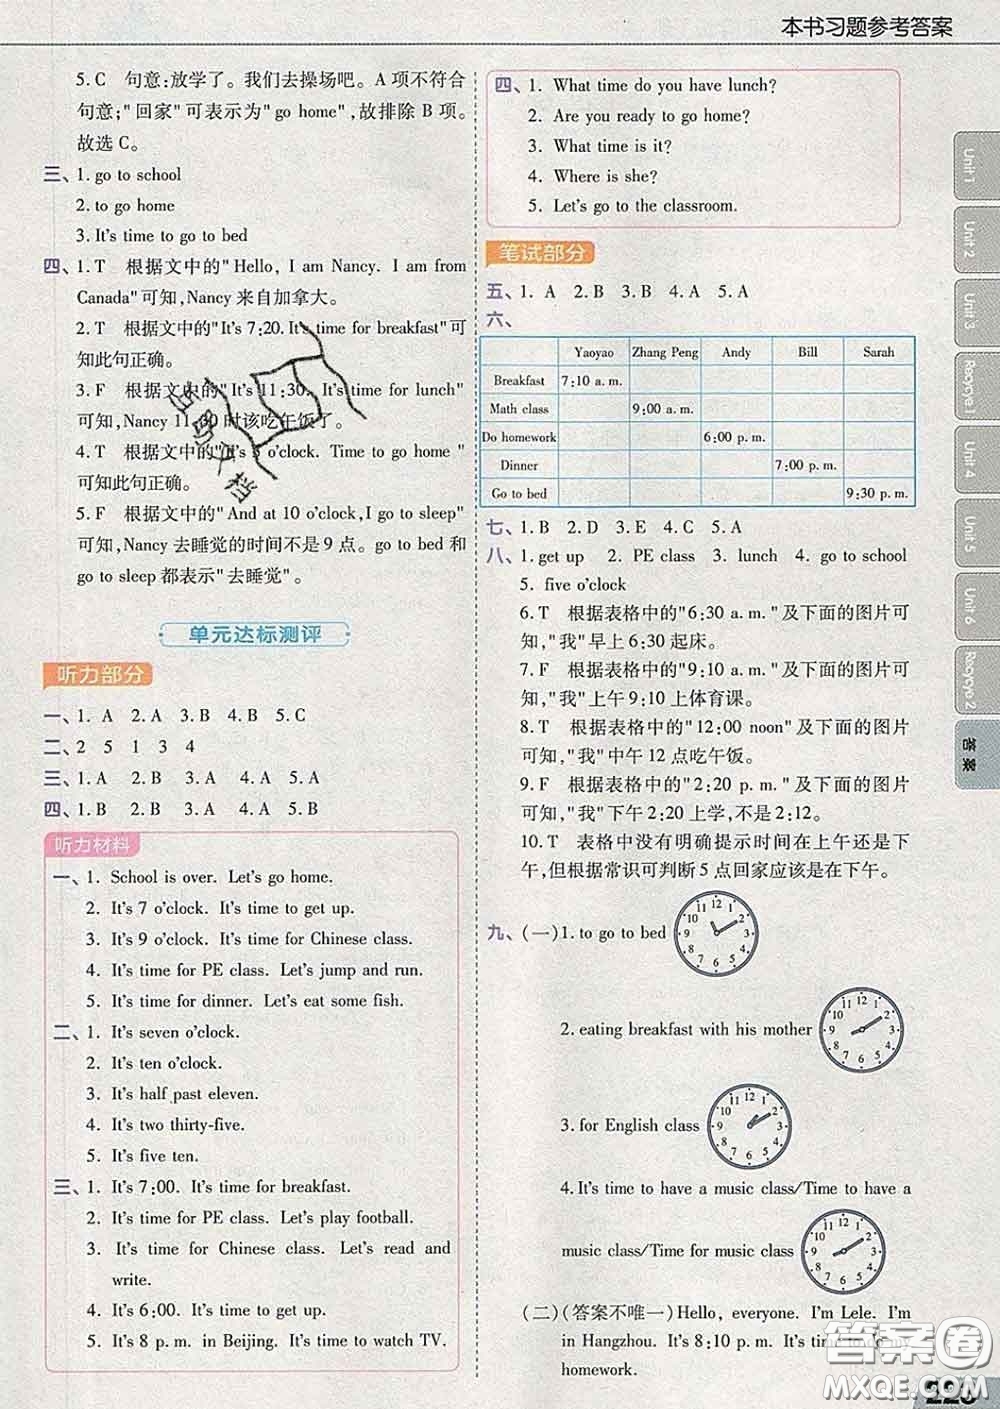 本书习题参考答案
5. C 句意:放学了。我们去操场吧。A 项不符合
句意;"回家"可表示为"go home",故排除 B 项。
故选 C。
三、1. go to school
2. to go home
3. It's time to go to bed
四、1. T 根据文中的"Hello, I am Nancy. I am from
Canada"可知,Nancy 来自加拿大。
2. T 根据文中的"It's 7:20. It's time for breakfast"可
知此句正确。
3. F 根据文中的"It's 11:30. It's time for lunch"
可知,Nancy 11:30 时该吃午饭了。
4. T 根据文中的"It's 5 o'clock. Time to go home "
可知此句正确。
5. F 根据文中的"And at 10 o'clock,I go to sleep"
可知,Nancy 去睡觉的时间不是 9 点。go to bed 和
go to sleep 都表示"去睡觉"。
单元达标测评
听力部分
一、1. A 2. A 3. B 4. B 5. C
二、2 5 1 3 4
三、1. A 2. B 3. A 4. A 5. A
四、1. B 2. B 3. A 4. A 5. B
听力材料
一、1. School is over. Let's go home.
2. It's 7 o'clock. It's time to get up.
3. It's 9 o'clock. It's time for Chinese class.
4. It's time for PE class. Let's jump and run.
5. It's time for dinner. Let's eat some fish.
二、1. It's seven o'clock.
2. It's ten o'clock.
3. It's half past eleven.
4. It's two thirty-five.
5. It's five ten.
三、1. It's 7:00. It's time for breakfast.
2. It's time for PE class. Let's play football.
3. It's time for Chinese class. Let's read and
write.
4. It's 6:00. It's time for dinner.
5. It's 8 p. m. in Beijing. It's time to watch TV.
四、1. What time do you have lunch?
2. Are you ready to go home?
3. What time is it?
4. Where is she?
5. Let's go to the classroom.
笔试部分
五、1. A 2. B 3. B 4. A 5. A
六、
Yaoyao Zhang Peng Andy Bill Sarah
Breakfast 7:10 a. m.
Math class 9:00 a. m.
Do homework 6:00 p. m.
Dinner 7:00 p. m.
Go to bed 9:30 p. m.
七、1. B 2. D 3. E 4. C 5. A
八、1. get up 2. PE class 3. lunch 4. go to school
5. five o'clock
6. T 根据表格中的"6:30 a. m. "及下面的图片可
知,"我"早上 6:30 起床。
7. F 根据表格中的"9:10 a. m. "及下面的图片可
知,"我"上午 9:10 上体育课。
8. T 根据表格中的"12:00 noon"及下面的图片
可知,"我"中午 12 点吃午饭。
9. F 根据表格中的"2:20 p. m. "及下面的图片可
知,"我"下午 2:20 上学,不是 2:12。
10. T 表格中没有明确提示时间在上午还是下
午,但根据常识可判断 5 点回家应该是在下午。
九、(一)1. to go to bed
2. eating breakfast with his mother
3. for English class
4. It's time to have a music class/Time to have a
music class/Time for music class
(二)(答案不唯一)Hello, everyone. I'm Lele. I'm
in Hangzhou. It's 8:10 p. m. It's time
homework.
Unit 1
Unit 2
Unit 3
Recycle 1
Unit 4
Unit 5
Unit 6
Recycle 2
答案
答案圈
MXQE.COM